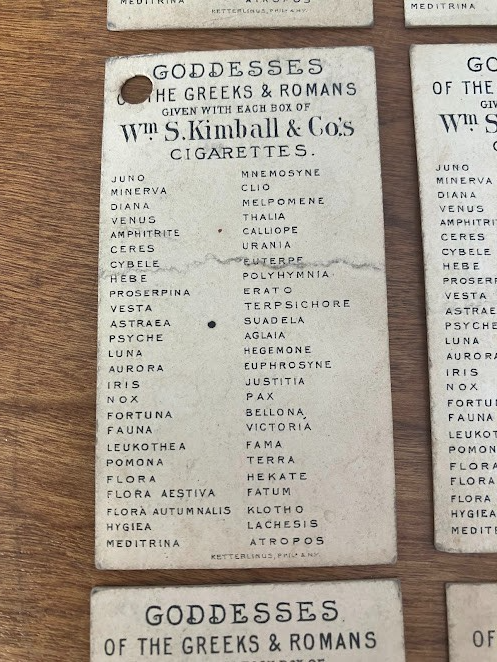 MEDITRINA ATROPOS
KETTERLINUS, PHILA & NY.
MEDITRINA
GODDESSES
OF THE GREEKS & ROMANS
GIVEN WITH EACH BOX OF
Wm S. Kimball & Co's
CIGARETTES.
JUNO
MINERVA
DIANA
VENUS
AMPHITRITE
CERES
CYBELE
HEBE
PROSERPINA
VESTA
ASTRAEA
PSYCHE
LUNA
AURORA
IRIS
NOX
FORTUNA
FAUNA
LEUKOTHEA
POMONA
FLORA
FLORA AESTIVA
FLORA AUTUMNALIS
HYGIEA
MEDITRINA
MNEMOSYNE
CLIO
MELPOMENE
THALIA
CALLIOPE
URANIA
EUTERPE
POLYHYMNIA
ERATO
TERPSICHORE
SUADELA
AGLAIA
HEGEMONE
EUPHROSYNE
JUSTITIA
PAX
BELLONA
VICTORIA
FAMA
TERRA
HEKATE
FATUM
KLOTHO
LACHESIS
ATROPOS
KETTERLINUS, PHILA & NY.
GO
OF THE
GIV
Wm S
C
JUNO
MINERVA
DIANA
VENUS
AMPHITRI
CERES
CYBELE
HEBE
PROSERPI
VESTA
ASTRAE
PSYCHE
LUNA
AURORA
IRIS
NOX
FORTUN
FAUNA
LEUKOT
POMON
FLORA
FLORA
FLORA
HYGIEA
MEDITE
GODDESSES
OF THE GREEKS & ROMANS
OF